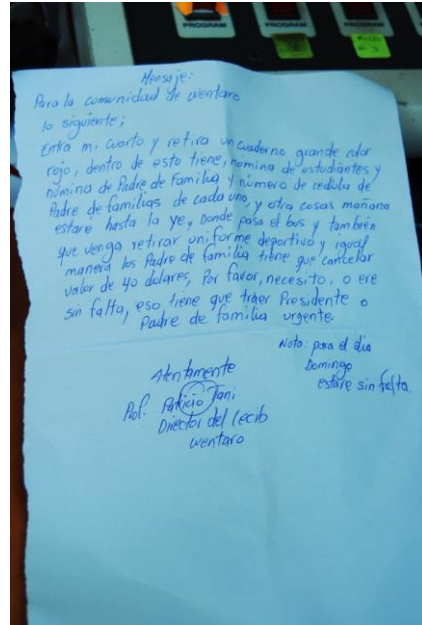 PROGRAM
PROGRAM
PROGRAM
Mensaje:
Para la comunidad de wentaro
lo siguiente;
Entra mi cuarto y retira un cuaderno grande color
rojo, dentro de esto tiene, nomina de estudiantes y
nómina de Padre de Familia y número de cedula de
Padre de familias de cada uno, y otra cosas mañana
estare hasta la ye, Donde pasa el bus y también
que venga retirar uniforme deportivo y igual
manera los Padre de familia tiene que cancelar
valor de 40 dolares, Por favor, necesito, o ere
sin falta, eso tiene que traer Presidente o
Padre de familia urgente.
Nota: para el dia
Domingo
estare sin falta.
Atentamente
Prof. Patricio Jani
Director del Cecib
wentaro